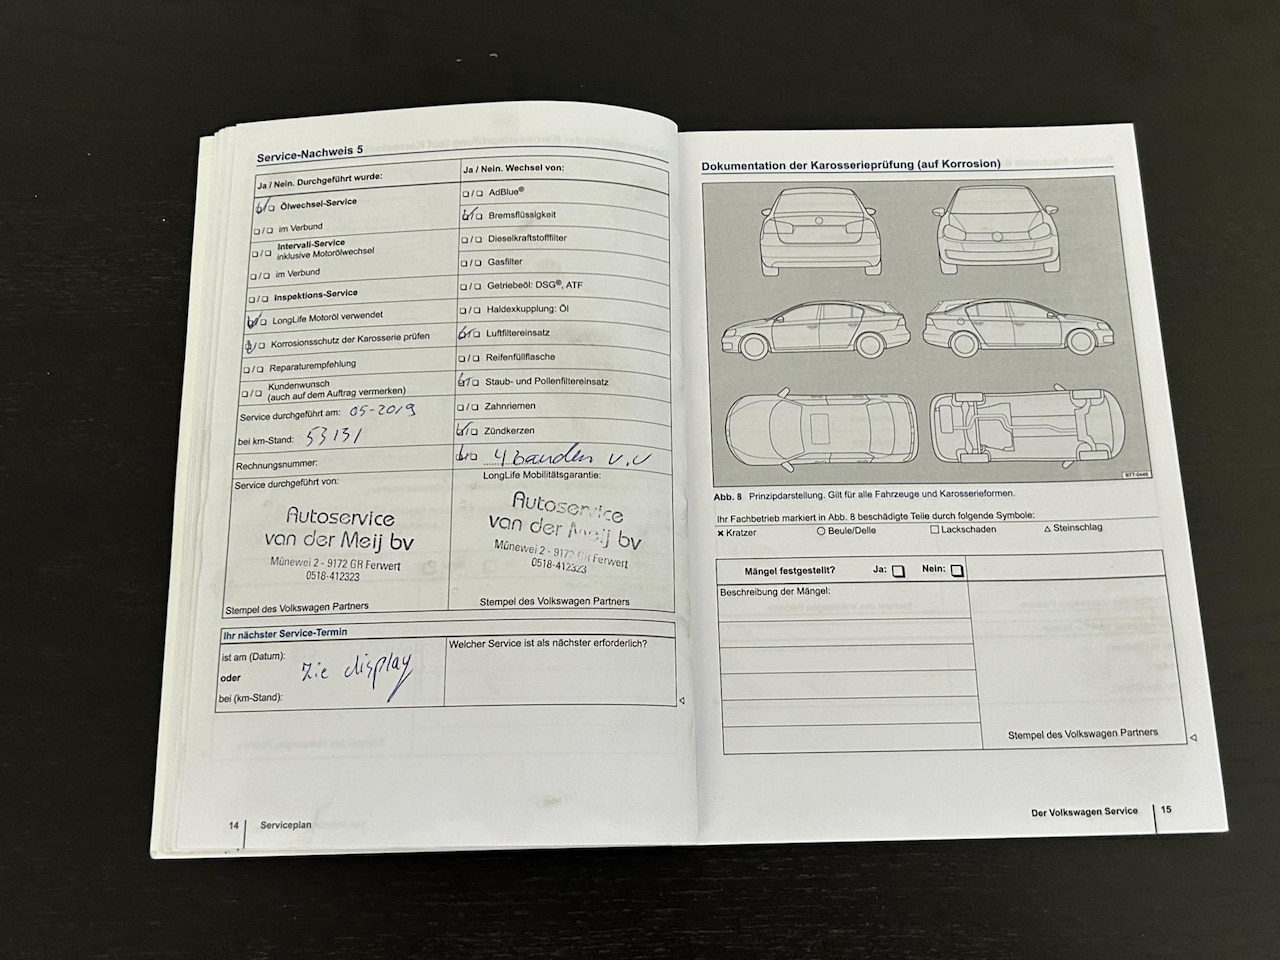 Service-Nachweis 5
Ja / Nein. Durchgeführt wurde:
❑/❑ Ölwechsel-Service
❑/❑ im Verbund
❑/❑ Intervall-Service
inklusive Motorölwechsel
❑/❑ im Verbund
❑/❑ Inspektions-Service
❑/❑ LongLife Motoröl verwendet
❑/❑ Korrosionsschutz der Karosserie prüfen
❑/❑ Reparaturempfehlung
❑/❑ Kundenwunsch
(auch auf dem Auftrag vermerken)
Service durchgeführt am: 05-2019
bei km-Stand: 53131
Rechnungsnummer:
Service durchgeführt von:
Autoservice
van der Meij bv
Mûnewei 2 - 9172 GR Ferwert
0518-412323
Stempel des Volkswagen Partners
Ja / Nein. Wechsel von:
❑/❑ AdBlue®
❑/❑ Bremsflüssigkeit
❑/❑ Dieselkraftstofffilter
❑/❑ Gasfilter
❑/❑ Getriebeöl: DSG®, ATF
❑/❑ Haldexkupplung: Öl
❑/❑ Luftfiltereinsatz
❑/❑ Reifenfüllflasche
❑/❑ Staub- und Pollenfiltereinsatz
❑/❑ Zahnriemen
❑/❑ Zündkerzen
❑/❑ 4 banden v.v
LongLife Mobilitätsgarantie:
Autoservice
van der Meij bv
Mûnewei 2 - 9172 GR Ferwert
0518-412323
Stempel des Volkswagen Partners
Ihr nächster Service-Termin
ist am (Datum):
oder
bei (km-Stand):
zie display
Welcher Service ist als nächster erforderlich?
14 Serviceplan
Dokumentation der Karosserieprüfung (auf Korrosion)
B7T-0449
Abb. 8 Prinzipdarstellung. Gilt für alle Fahrzeuge und Karosserieformen.
Ihr Fachbetrieb markiert in Abb. 8 beschädigte Teile durch folgende Symbole:
× Kratzer ○ Beule/Delle □ Lackschaden △ Steinschlag
Mängel festgestellt? Ja: ❑ Nein: ❑
Beschreibung der Mängel:
Stempel des Volkswagen Partners
Der Volkswagen Service 15